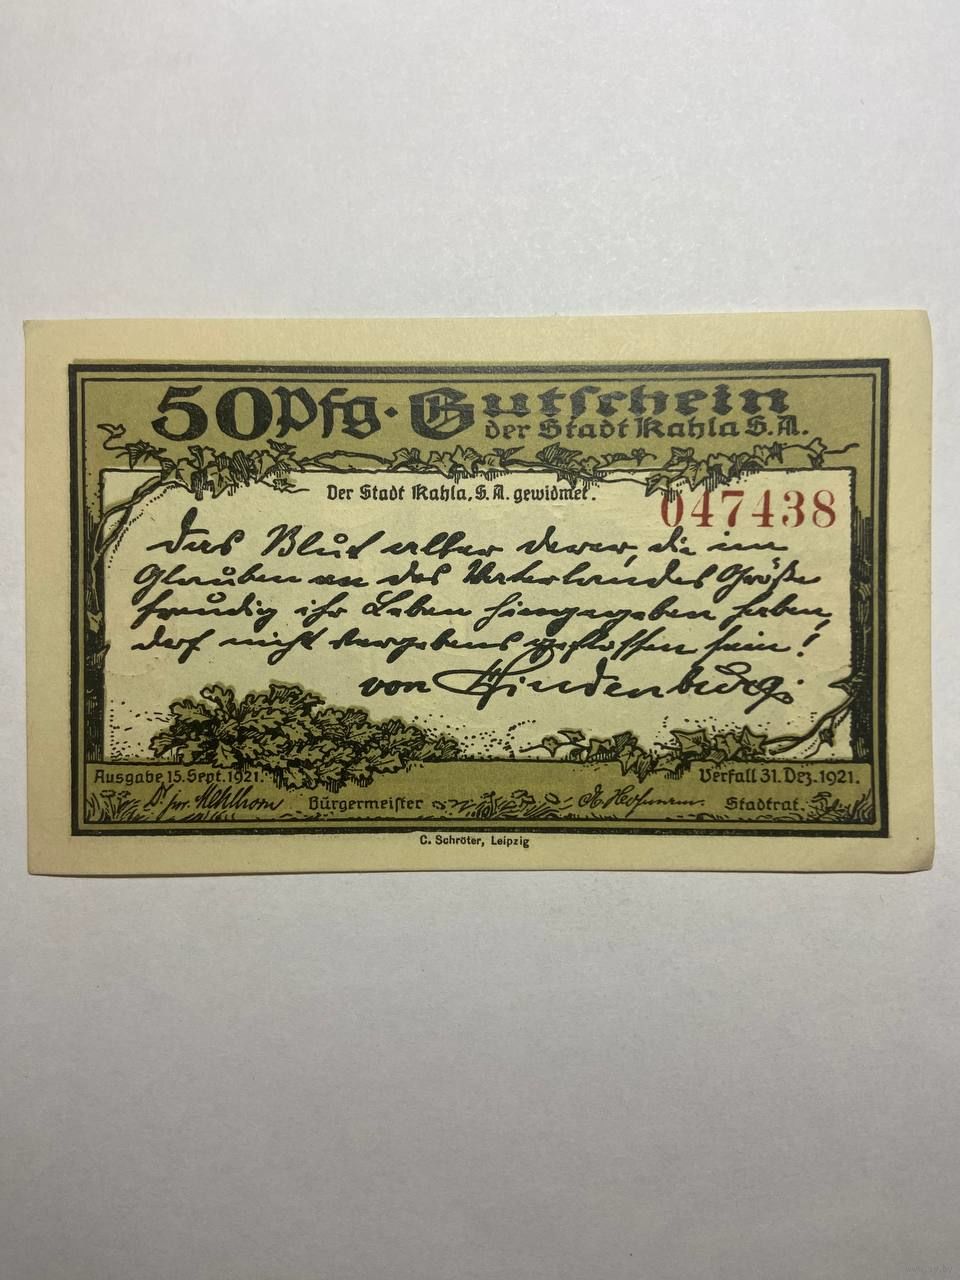 50 Pfg. Gutschein
der Stadt Kahla S.A.
Der Stadt Kahla, S.A. gewidmet.
047438
Das Blut aller derer, die im
Glauben an des Vaterlandes Größe
freudig ihr Leben hingegeben haben,
darf nicht vergebens geflossen sein!
von Hindenburg.
Ausgabe 15. Sept. 1921.
Verfall 31. Dez. 1921.
Dr. jur. Mehlhorn Bürgermeister
Stadtrat.
C. Schröter, Leipzig